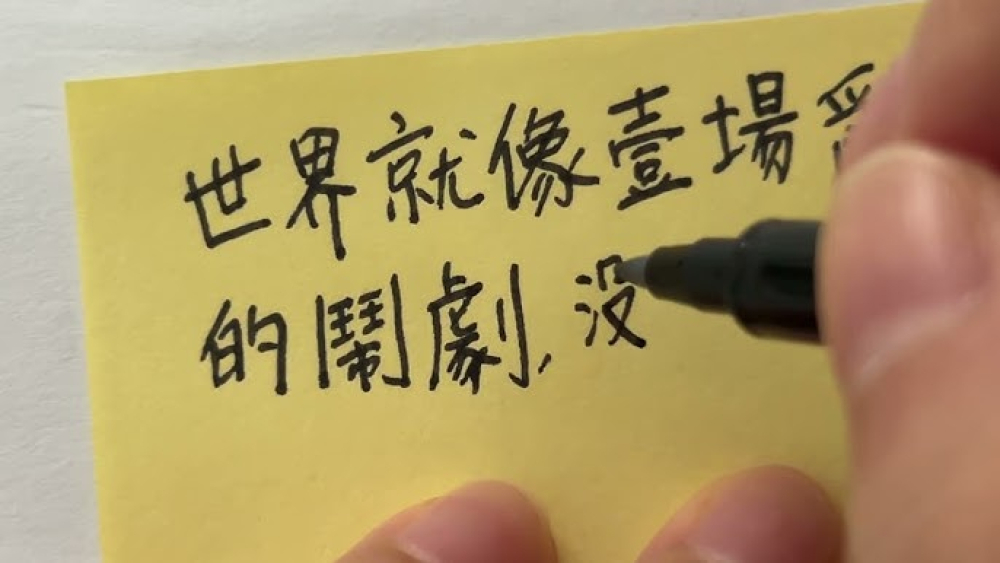 世界就像壹場
的鬧劇,沒